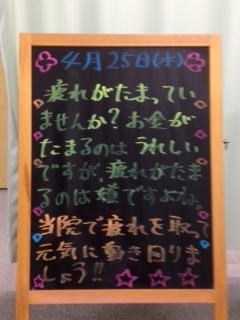 4月25日(水)
疲れがたまってい
ませんか?お金が
たまるのはうれしい
ですが、疲れがたま
るのは嫌ですよね。
当院で疲れを取って
元気に動き回りま
しょう!!